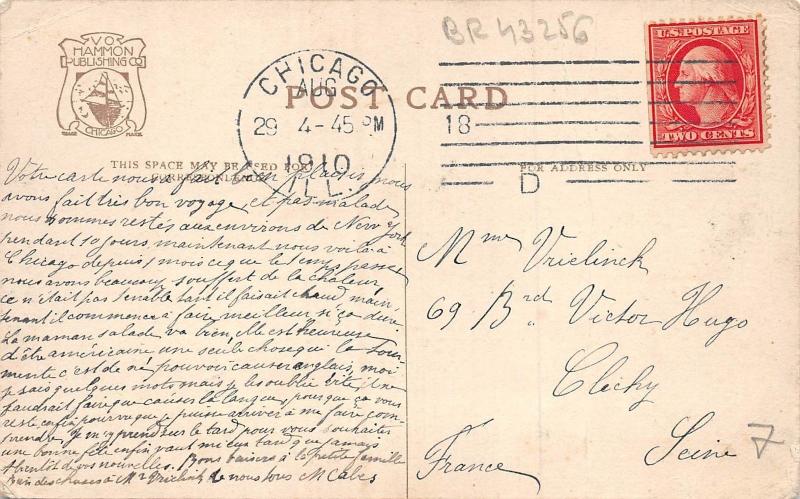 BR 43256
V O
HAMMON
PUBLISHING CO
CHICAGO
TRADE MARK
CHICAGO
AUG
29 4-45 PM
1910
ILL.
POST CARD
18
D
U.S. POSTAGE
TWO CENTS
THIS SPACE MAY BE USED FOR
CORRESPONDENCE
FOR ADDRESS ONLY
Votre carte nous a fait bien plaisir nous
avons fait très bon voyage, et pas malade
nous sommes restés aux environs de New York
pendant 10 jours, maintenant nous voilà à
Chicago depuis 1 mois ce que le temps passe
nous avons beaucoup souffert de la chaleur
ce n'était pas tenable tant il faisait chaud, main-
tenant il commence à faire meilleur si ça dure
La maman salade va bien, elle est heureuse
d'être américaine une seule chose qui la tour-
mente c'est de ne pouvoir causer anglais, moi
je sais quelques mots mais je les oublie vite, il ne
faudrait faire que causer la langue, pour que ça vous
reste enfin pourvu que je puisse arriver à me faire com-
prendre. Je m'y prend sur le tard pour vous souhaiter
une bonne fête enfin vaut mieux tard que jamais
A bientôt de vos nouvelles. Bons baisers à la petite famille
Bien des choses à Mr Vrielinck de nous tous M Cales
Mme Vrielinck
69 Brd Victor Hugo
Clichy
Seine
France
7